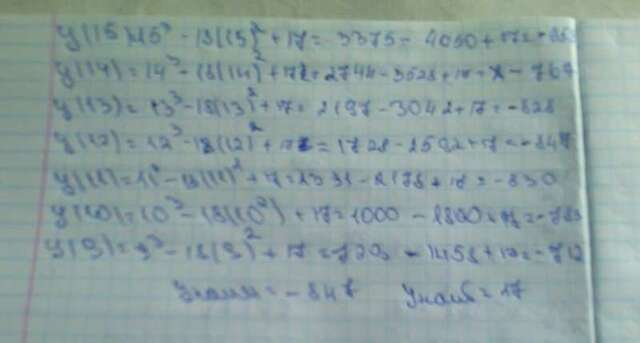 y(15)=15³ - 18(15)² + 17 = 3375 - 4050 + 17 =
y(14) = 14³ - 18(14)² + 17 = 2744 - 3528 + 17 = - 767
y(13) = 13³ - 18(13)² + 17 = 2197 - 3042 + 17 = - 828
y(12) = 12³ - 18(12)² + 17 = 1728 - 2592 + 17 = - 847
y(11) = 11³ - 18(11)² + 17 = 1331 - 2178 + 17 = - 830
y(10) = 10³ - 18(10²) + 17 = 1000 - 1800 + 17 = - 783
y(9) = 9³ - 18(9)² + 17 = 729 - 1458 + 17 = - 712
Yнаим = - 847 Yнаиб = 17